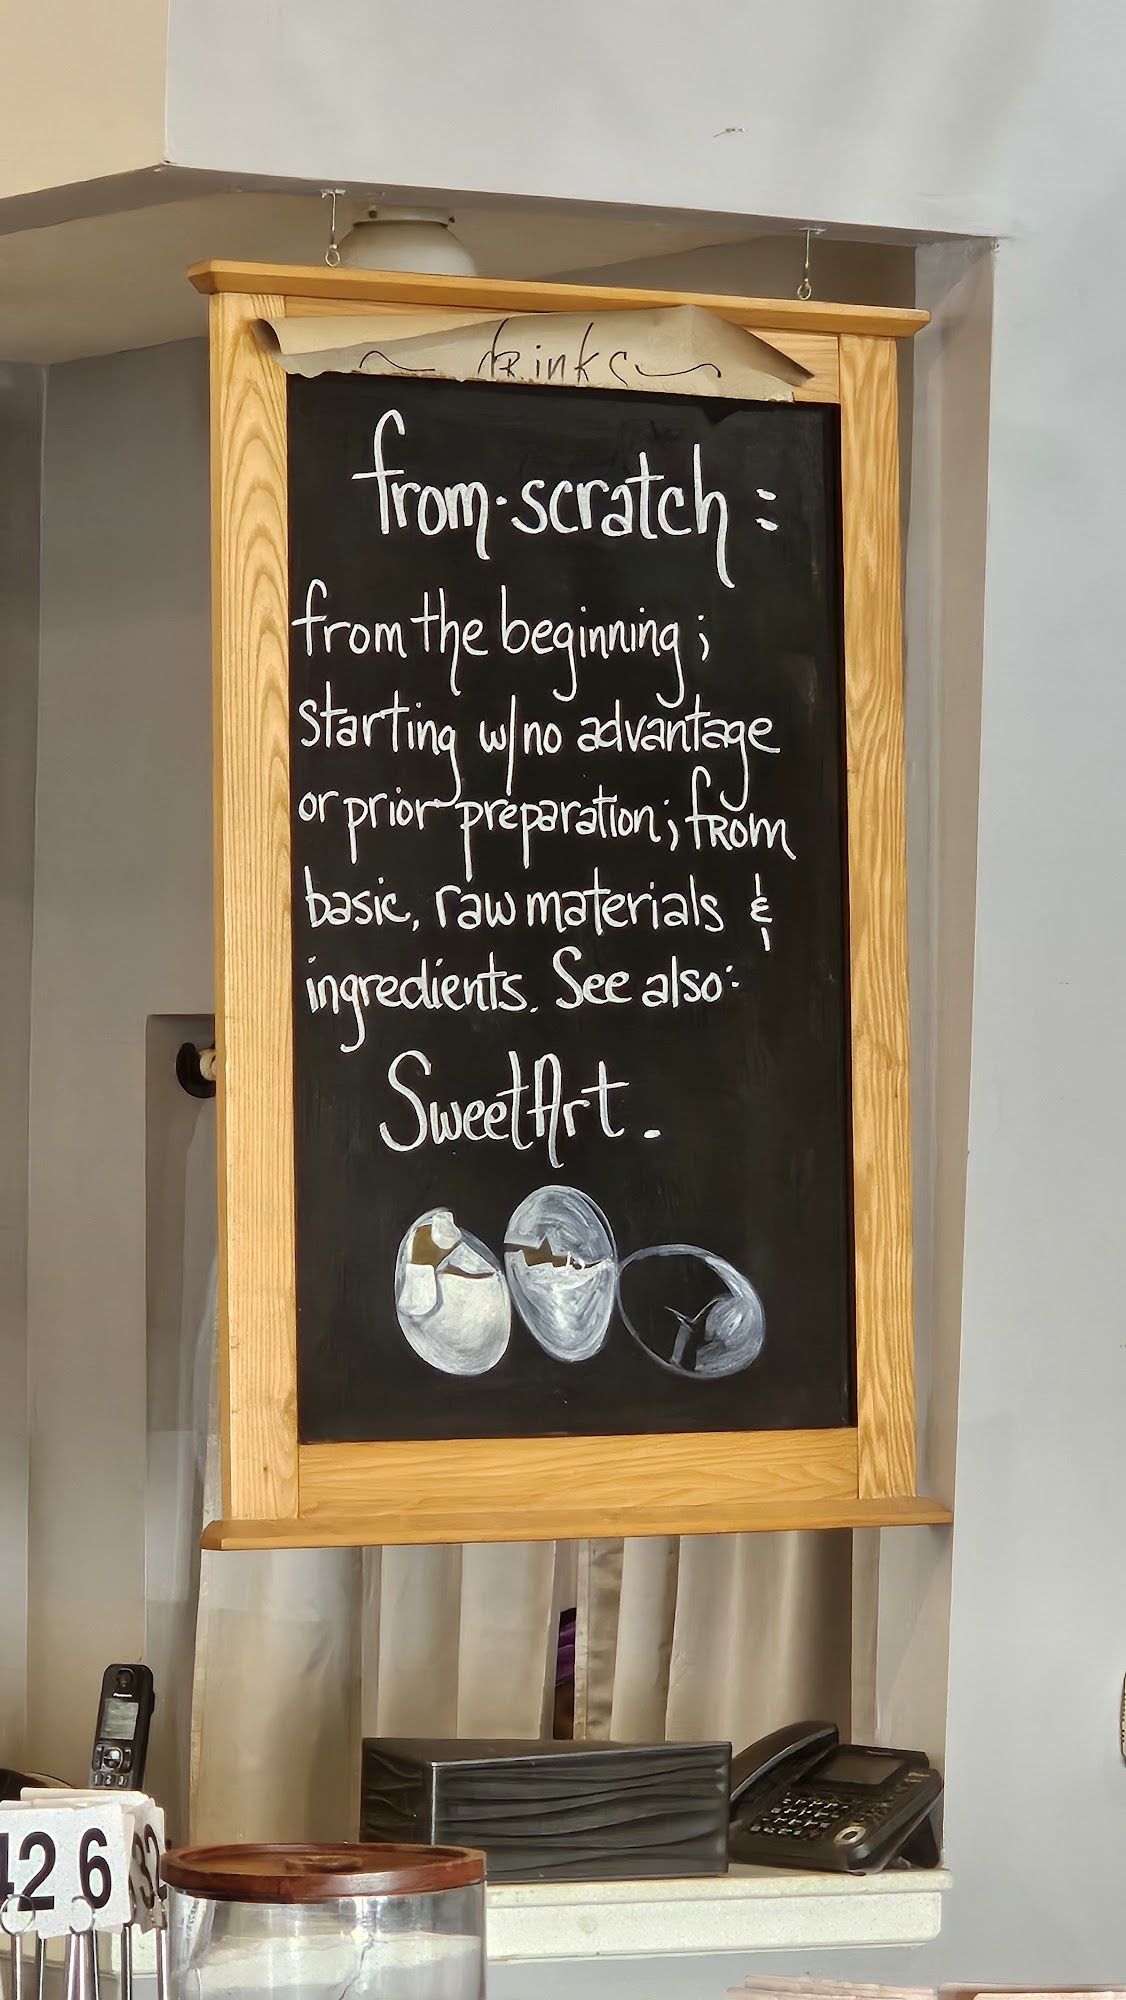 drinks
from-scratch =
from the beginning;
starting w/no advantage
or prior preparation; from
basic, raw materials &
ingredients. See also:
SweetArt.
42 6
32